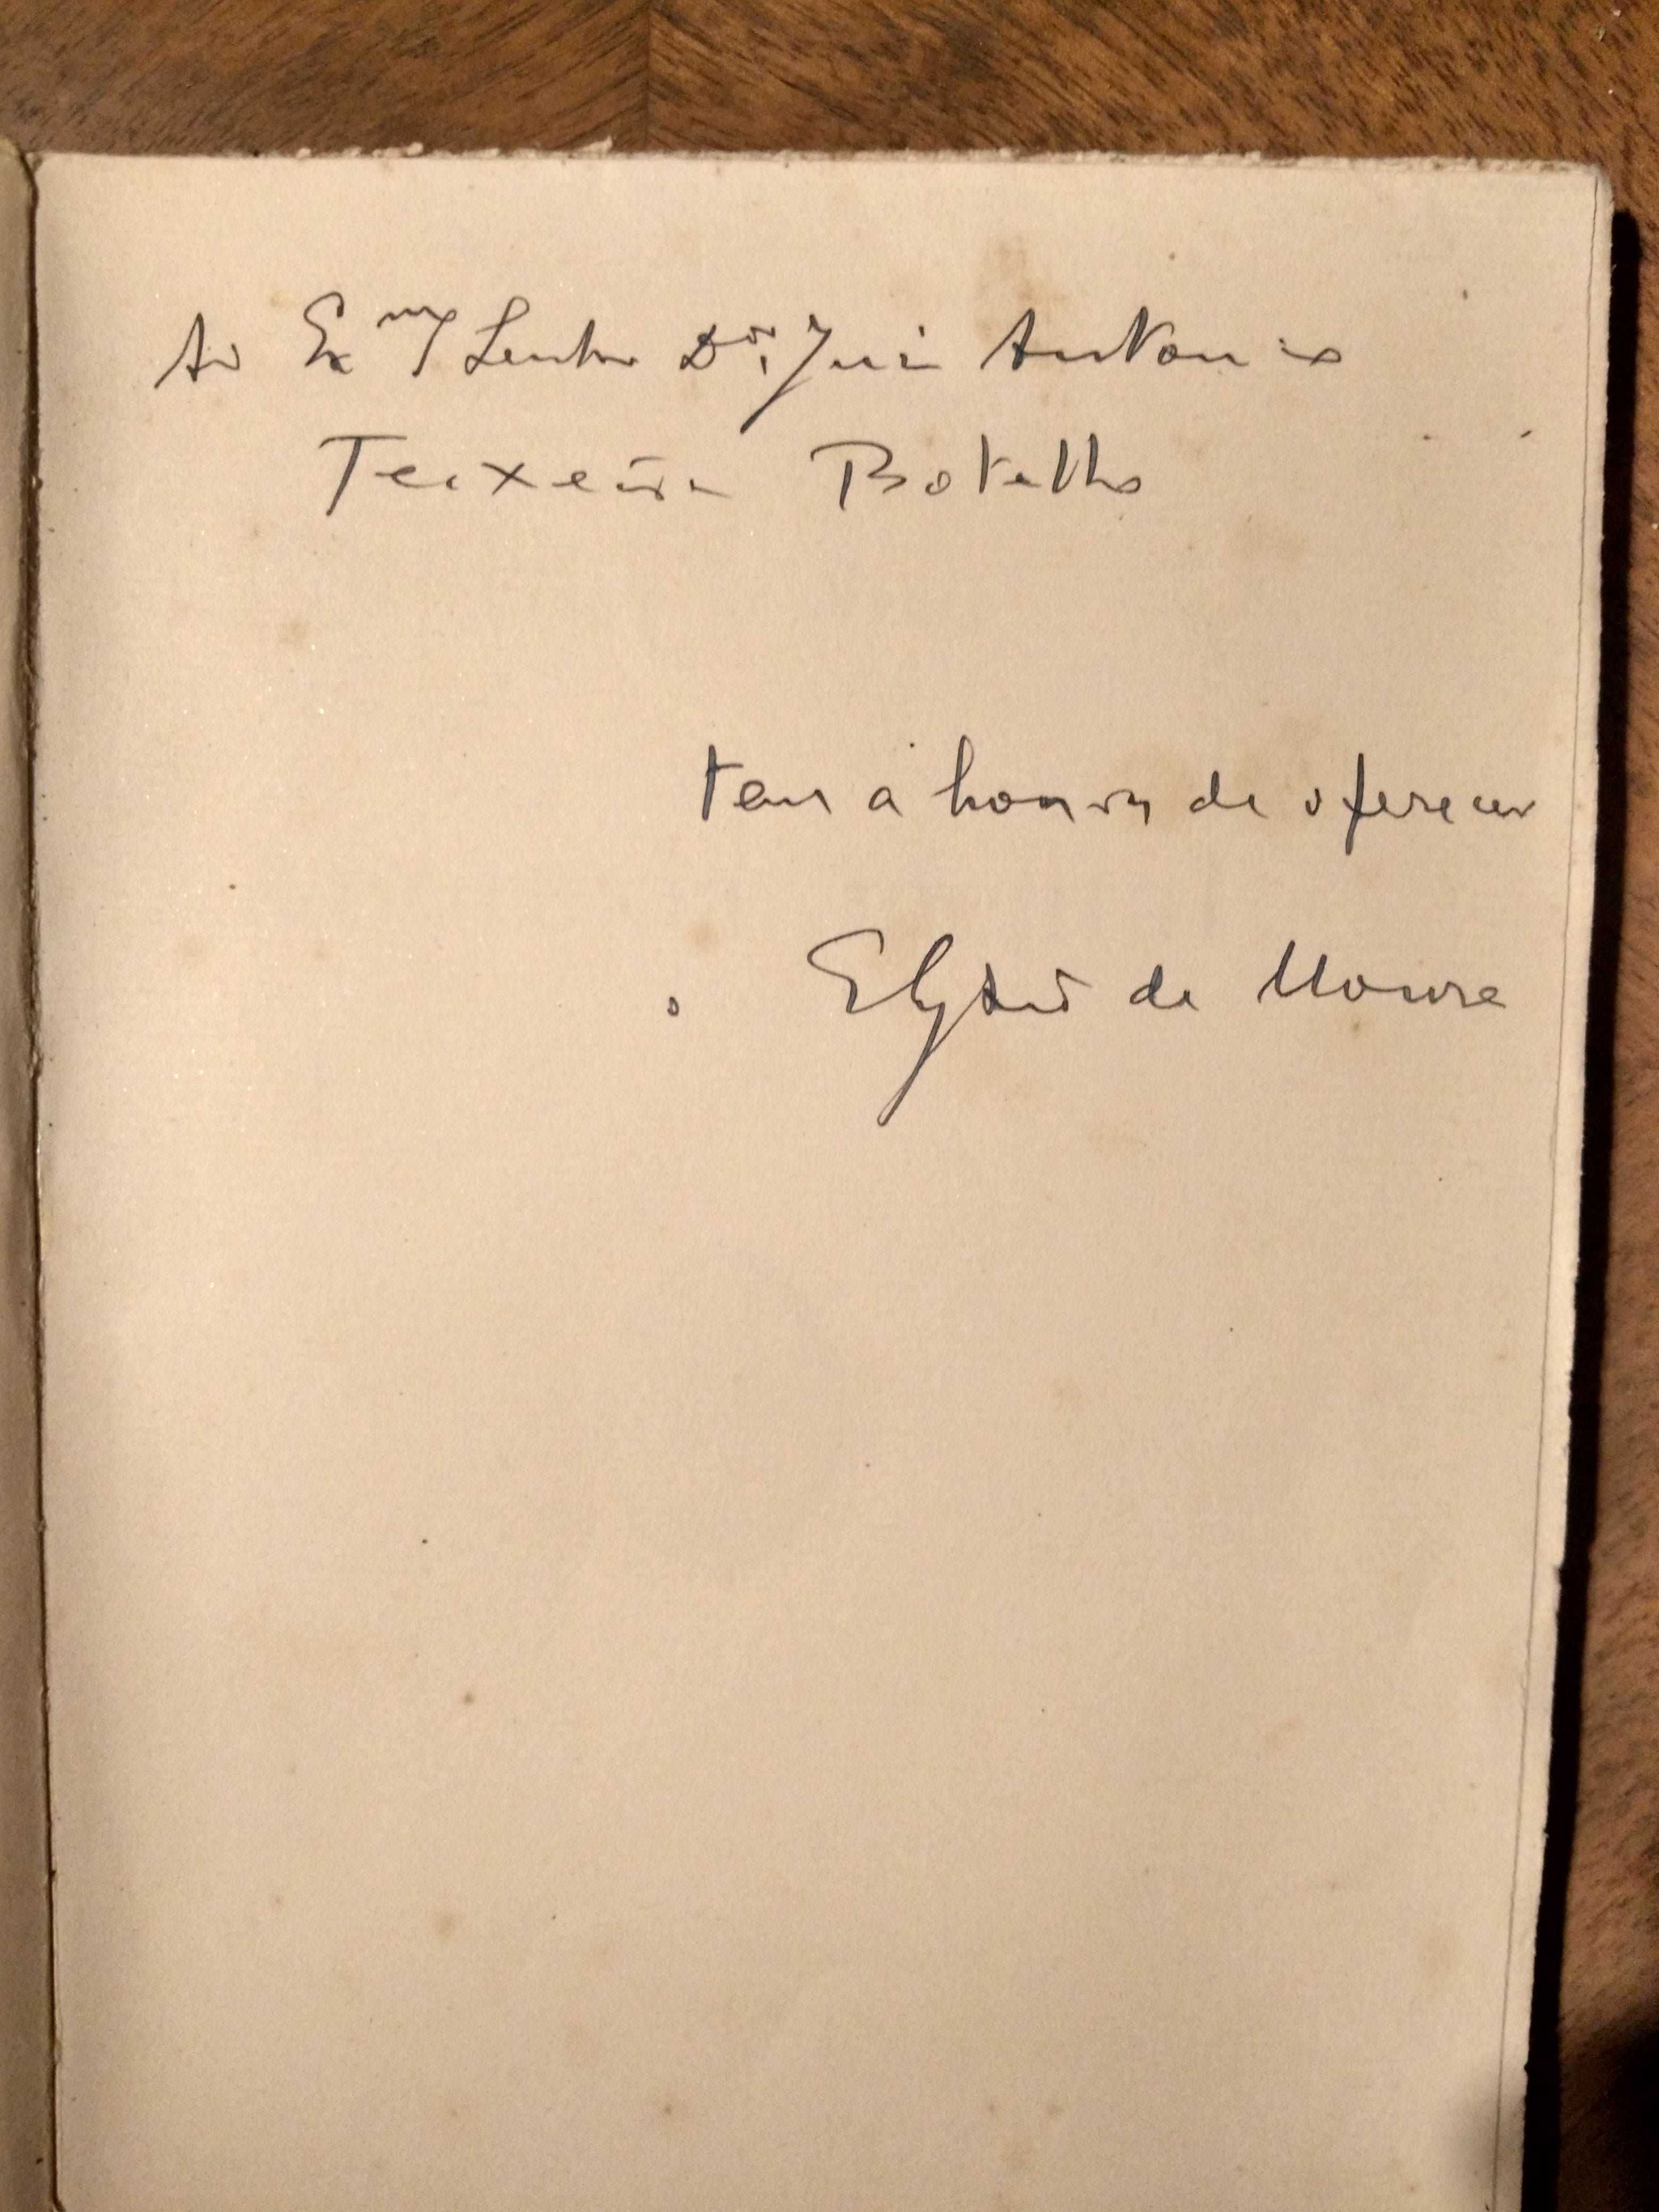 Ao Exmo Senhor Dor. José Antonio
Teixeira Botelho
tem a honra de oferecer
o Elysio de Moura